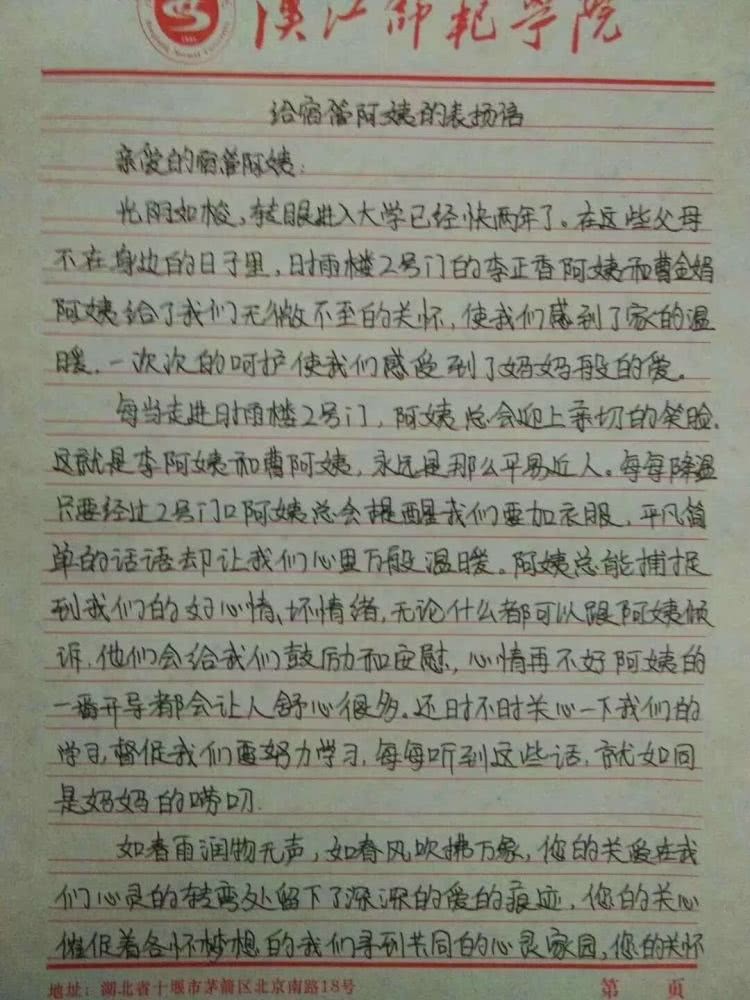 汉江师范学院
给宿管阿姨的表扬信
亲爱的宿管阿姨：
光阴如梭，转眼进入大学已经快两年了。在这些父母
不在身边的日子里，时雨楼2号门的李正香阿姨和曹金娟
阿姨给了我们无微不至的关怀，使我们感到了家的温
暖，一次次的呵护使我们感受到了妈妈般的爱。
每当走进时雨楼2号门，阿姨总会迎上亲切的笑脸，
这就是李阿姨和曹阿姨，永远是那么平易近人。每每降温
只要经过2号门口阿姨总会提醒我们要加衣服，平凡简
单的话语却让我们心里万般温暖。阿姨总能捕捉
到我们的好心情、坏情绪，无论什么都可以跟阿姨倾
诉，他们会给我们鼓励和安慰，心情再不好阿姨的
一番开导都会让人舒心很多。还时不时关心一下我们的
学习，督促我们要努力学习，每每听到这些话，就如同
是妈妈的唠叨.
如春雨润物无声，如春风吹拂万象，您的关爱在我
们心灵的转弯处留下了深深的爱的痕迹，您的关心
催促着各怀梦想的我们寻到共同的心灵家园，您的关怀
地址：湖北省十堰市茅箭区北京南路18号
第 页